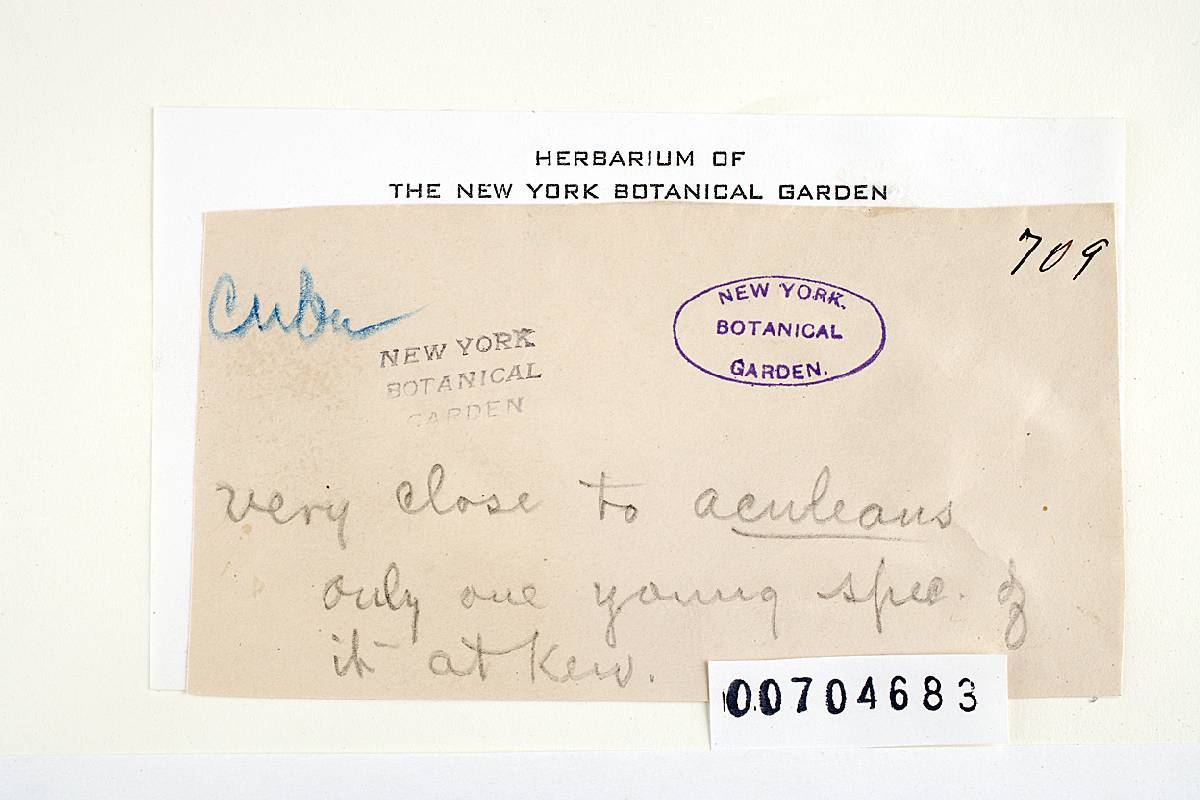 HERBARIUM OF
THE NEW YORK BOTANICAL GARDEN
709
Cuba
NEW YORK
BOTANICAL
GARDEN
NEW YORK.
BOTANICAL
GARDEN.
very close to aculeans
only one young spec. of
it at Kew.
00704683